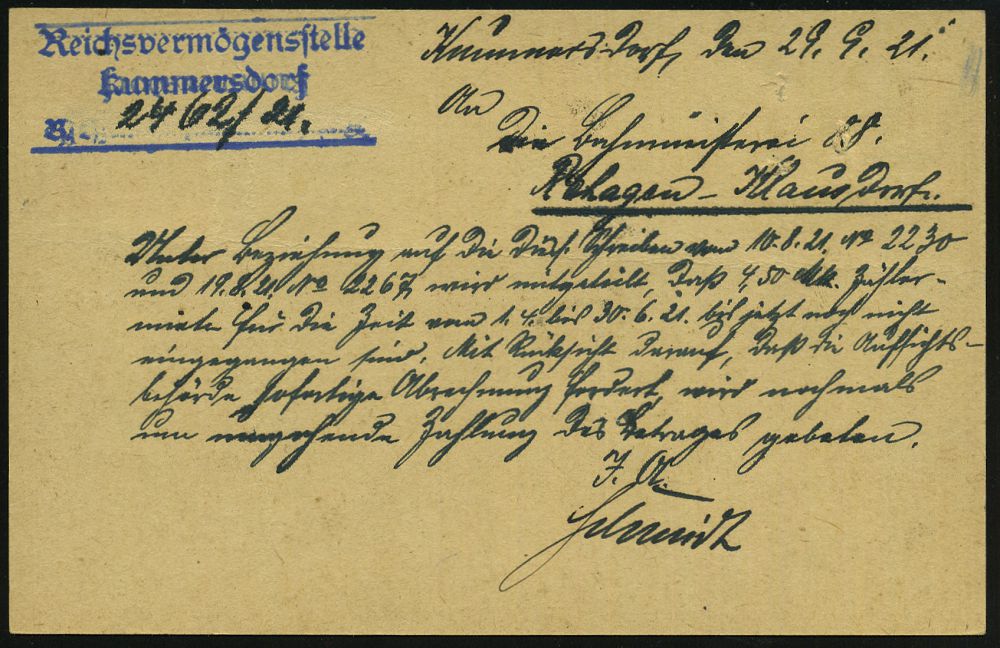 Reichsvermögensstelle
Kummersdorf
2462/21.
Kummersdorf, den 29.9.21.
An
die Bahnmeisterei 88.
Rehagen-Klausdorf.
Unter Beziehung auf die Schreiben vom 10.8.21. No 2230
und 19.8.21. No 2267, wird mitgeteilt, daß 4,50 Mk. Zähler-
miete für die Zeit vom 1.4. bis 30.6.21. bis jetzt noch nicht
eingegangen sind. Mit Rücksicht darauf, daß die Aufsichts-
behörde sofortige Abrechnung fordert, wird nochmals
um umgehende Zahlung des Betrages gebeten.
I. A.
Schmidt